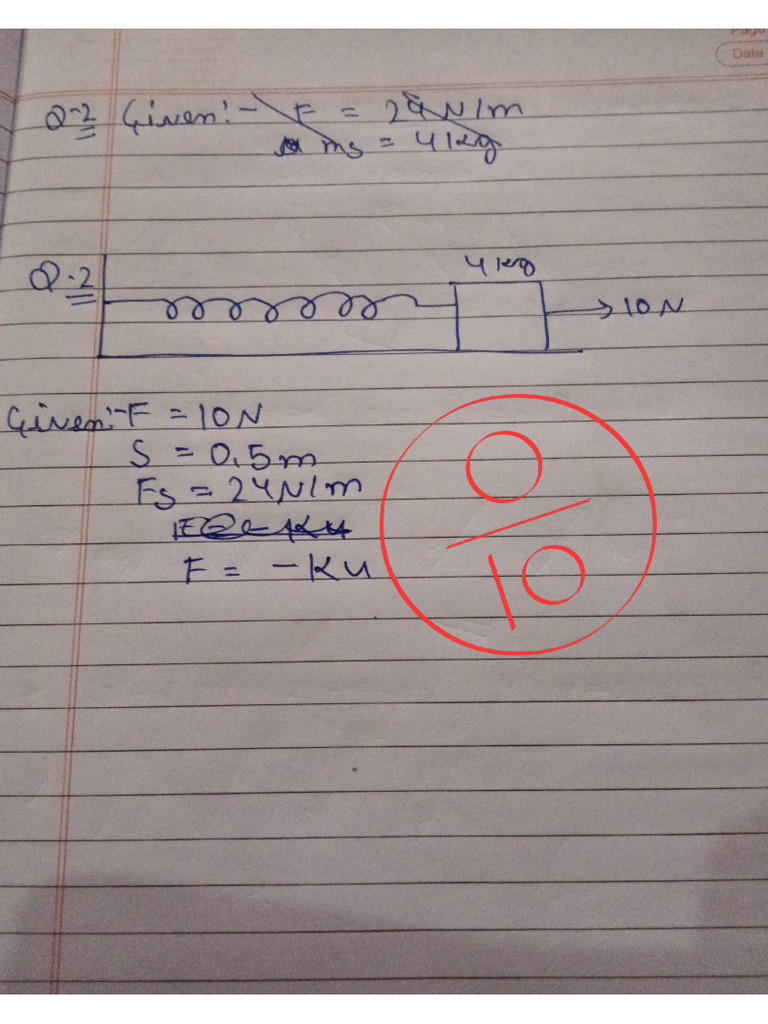 Page
Date
Q-2 Given:- F = 24 N/m
ms = 4 kg
4 kg
Q-2
10 N
Given:- F = 10 N
S = 0.5 m
Fs = 24 N/m
F = -Ku
0/10